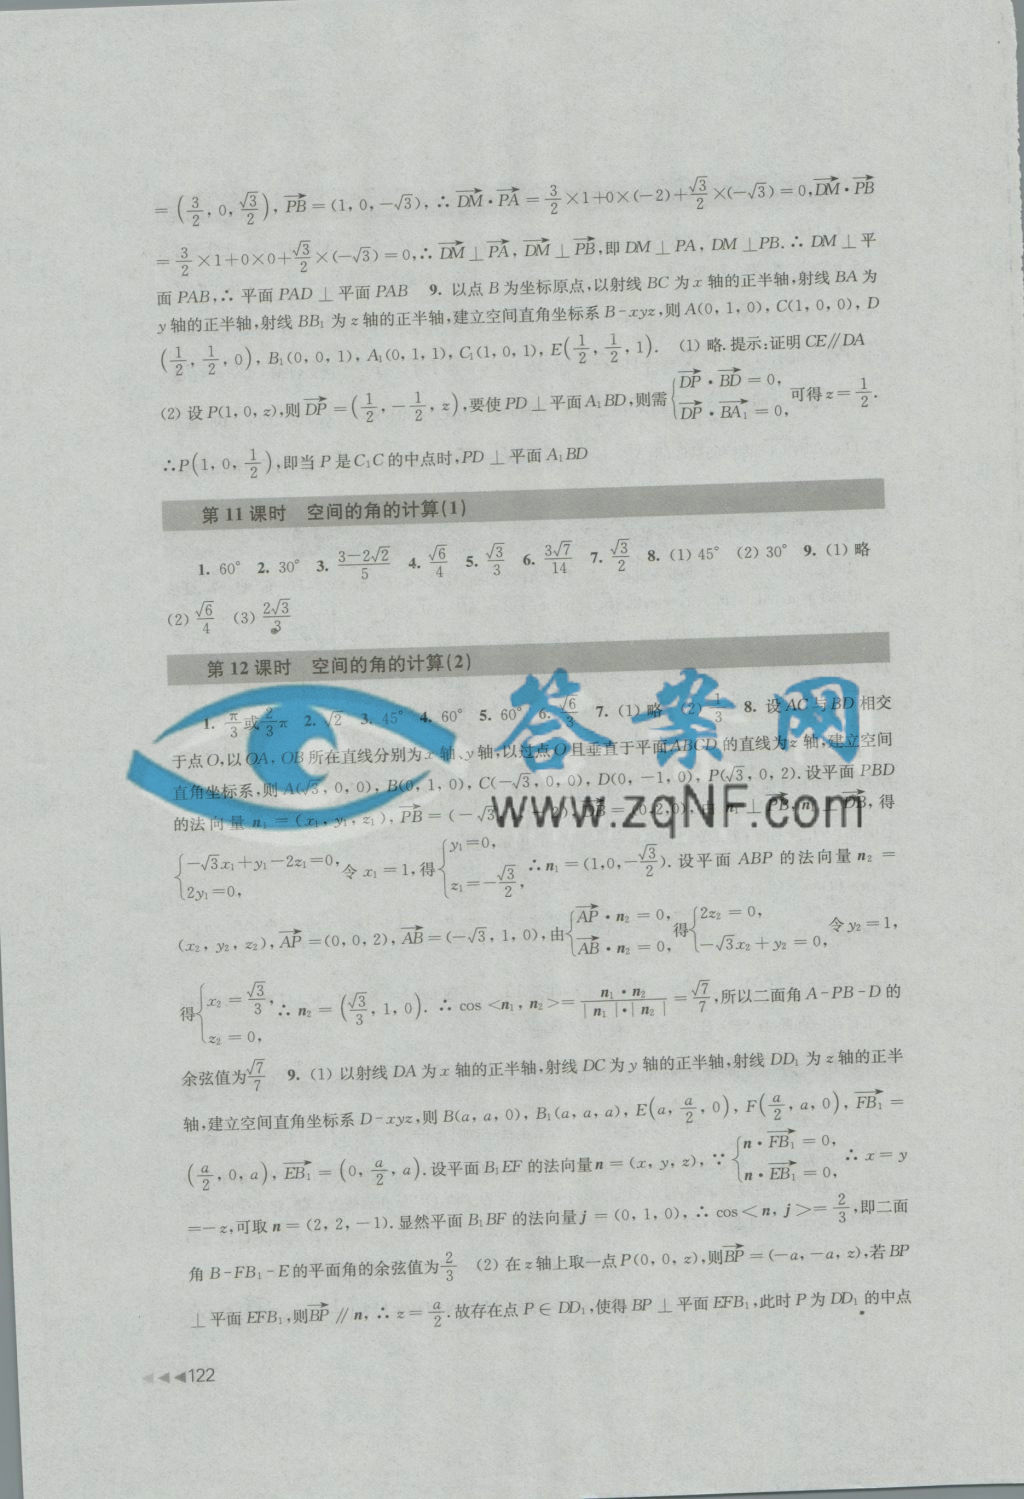 =(3/2, 0, √3/2), PB→=(1, 0, -√3), ∴ DM→·PA→=3/2×1+0×(-2)+√3/2×(-√3)=0, DM→·PB→
=3/2×1+0×0+√3/2×(-√3)=0, ∴ DM→⊥PA→, DM→⊥PB→, 即 DM⊥PA, DM⊥PB. ∴ DM⊥平
面 PAB, ∴ 平面 PAD⊥平面 PAB 9. 以点 B 为坐标原点, 以射线 BC 为 x 轴的正半轴, 射线 BA 为
y 轴的正半轴, 射线 BB₁ 为 z 轴的正半轴, 建立空间直角坐标系 B-xyz, 则 A(0, 1, 0), C(1, 0, 0), D
(1/2, 1/2, 0), B₁(0, 0, 1), A₁(0, 1, 1), C₁(1, 0, 1), E(1/2, 1/2, 1). (1) 略. 提示: 证明 CE∥DA
(2) 设 P(1, 0, z), 则 DP→=(1/2, -1/2, z), 要使 PD⊥平面 A₁BD, 则需{DP→·BD→=0, DP→·BA₁→=0, 可得 z=1/2.
∴P(1, 0, 1/2), 即当 P 是 C₁C 的中点时, PD⊥平面 A₁BD
第 11 课时 空间的角的计算(1)
1. 60° 2. 30° 3. (3-2√2)/5 4. √6/4 5. √3/3 6. 3√7/14 7. √3/2 8. (1) 45° (2) 30° 9. (1) 略
(2) √6/4 (3) 2√3/3
第 12 课时 空间的角的计算(2)
1. π/3或2/3π 2. √2 3. 45° 4. 60° 5. 60° 6. √6/3 7. (1) 略 (2) 1/3 8. 设 AC 与 BD 相交
于点 O, 以 OA, OB 所在直线分别为 x 轴、y 轴, 以过点 O 且垂直于平面 ABCD 的直线为 z 轴, 建立空间
直角坐标系, 则 A(√3, 0, 0), B(0, 1, 0), C(-√3, 0, 0), D(0, -1, 0), P(√3, 0, 2). 设平面 PBD
的法向量 n₁=(x₁, y₁, z₁), PB→=(-√3, 1, -2), DB→=(0, 2, 0), 由 n₁⊥PB→, n₁⊥DB→, 得
{-√3x₁+y₁-2z₁=0, 2y₁=0, 令 x₁=1, 得{y₁=0, z₁=-√3/2, ∴n₁=(1, 0, -√3/2). 设平面 ABP 的法向量 n₂=
(x₂, y₂, z₂), AP→=(0, 0, 2), AB→=(-√3, 1, 0), 由{AP→·n₂=0, AB→·n₂=0, 得{2z₂=0, -√3x₂+y₂=0, 令 y₂=1,
得{x₂=√3/3, z₂=0, ∴ n₂=(√3/3, 1, 0). ∴ cos<n₁, n₂>=n₁·n₂/|n₁|·|n₂|=√7/7, 所以二面角 A-PB-D 的
余弦值为√7/7 9. (1) 以射线 DA 为 x 轴的正半轴, 射线 DC 为 y 轴的正半轴, 射线 DD₁ 为 z 轴的正半
轴, 建立空间直角坐标系 D-xyz, 则 B(a, a, 0), B₁(a, a, a), E(a, a/2, 0), F(a/2, a, 0), FB₁→=
(a/2, 0, a), EB₁→=(0, a/2, a). 设平面 B₁EF 的法向量 n=(x, y, z), ∵{n·FB₁→=0, n·EB₁→=0, ∴ x=y
=-z, 可取 n=(2, 2, -1). 显然平面 B₁BF 的法向量 j=(0, 1, 0), ∴ cos<n, j>=2/3, 即二面
角 B-FB₁-E 的平面角的余弦值为2/3 (2) 在 z 轴上取一点 P(0, 0, z), 则BP→=(-a, -a, z), 若 BP
⊥平面 EFB₁, 则BP→∥n, ∴ z=a/2. 故存在点 P∈DD₁, 使得 BP⊥平面 EFB₁, 此时 P 为 DD₁ 的中点
122
答案网
www.zqNF.com